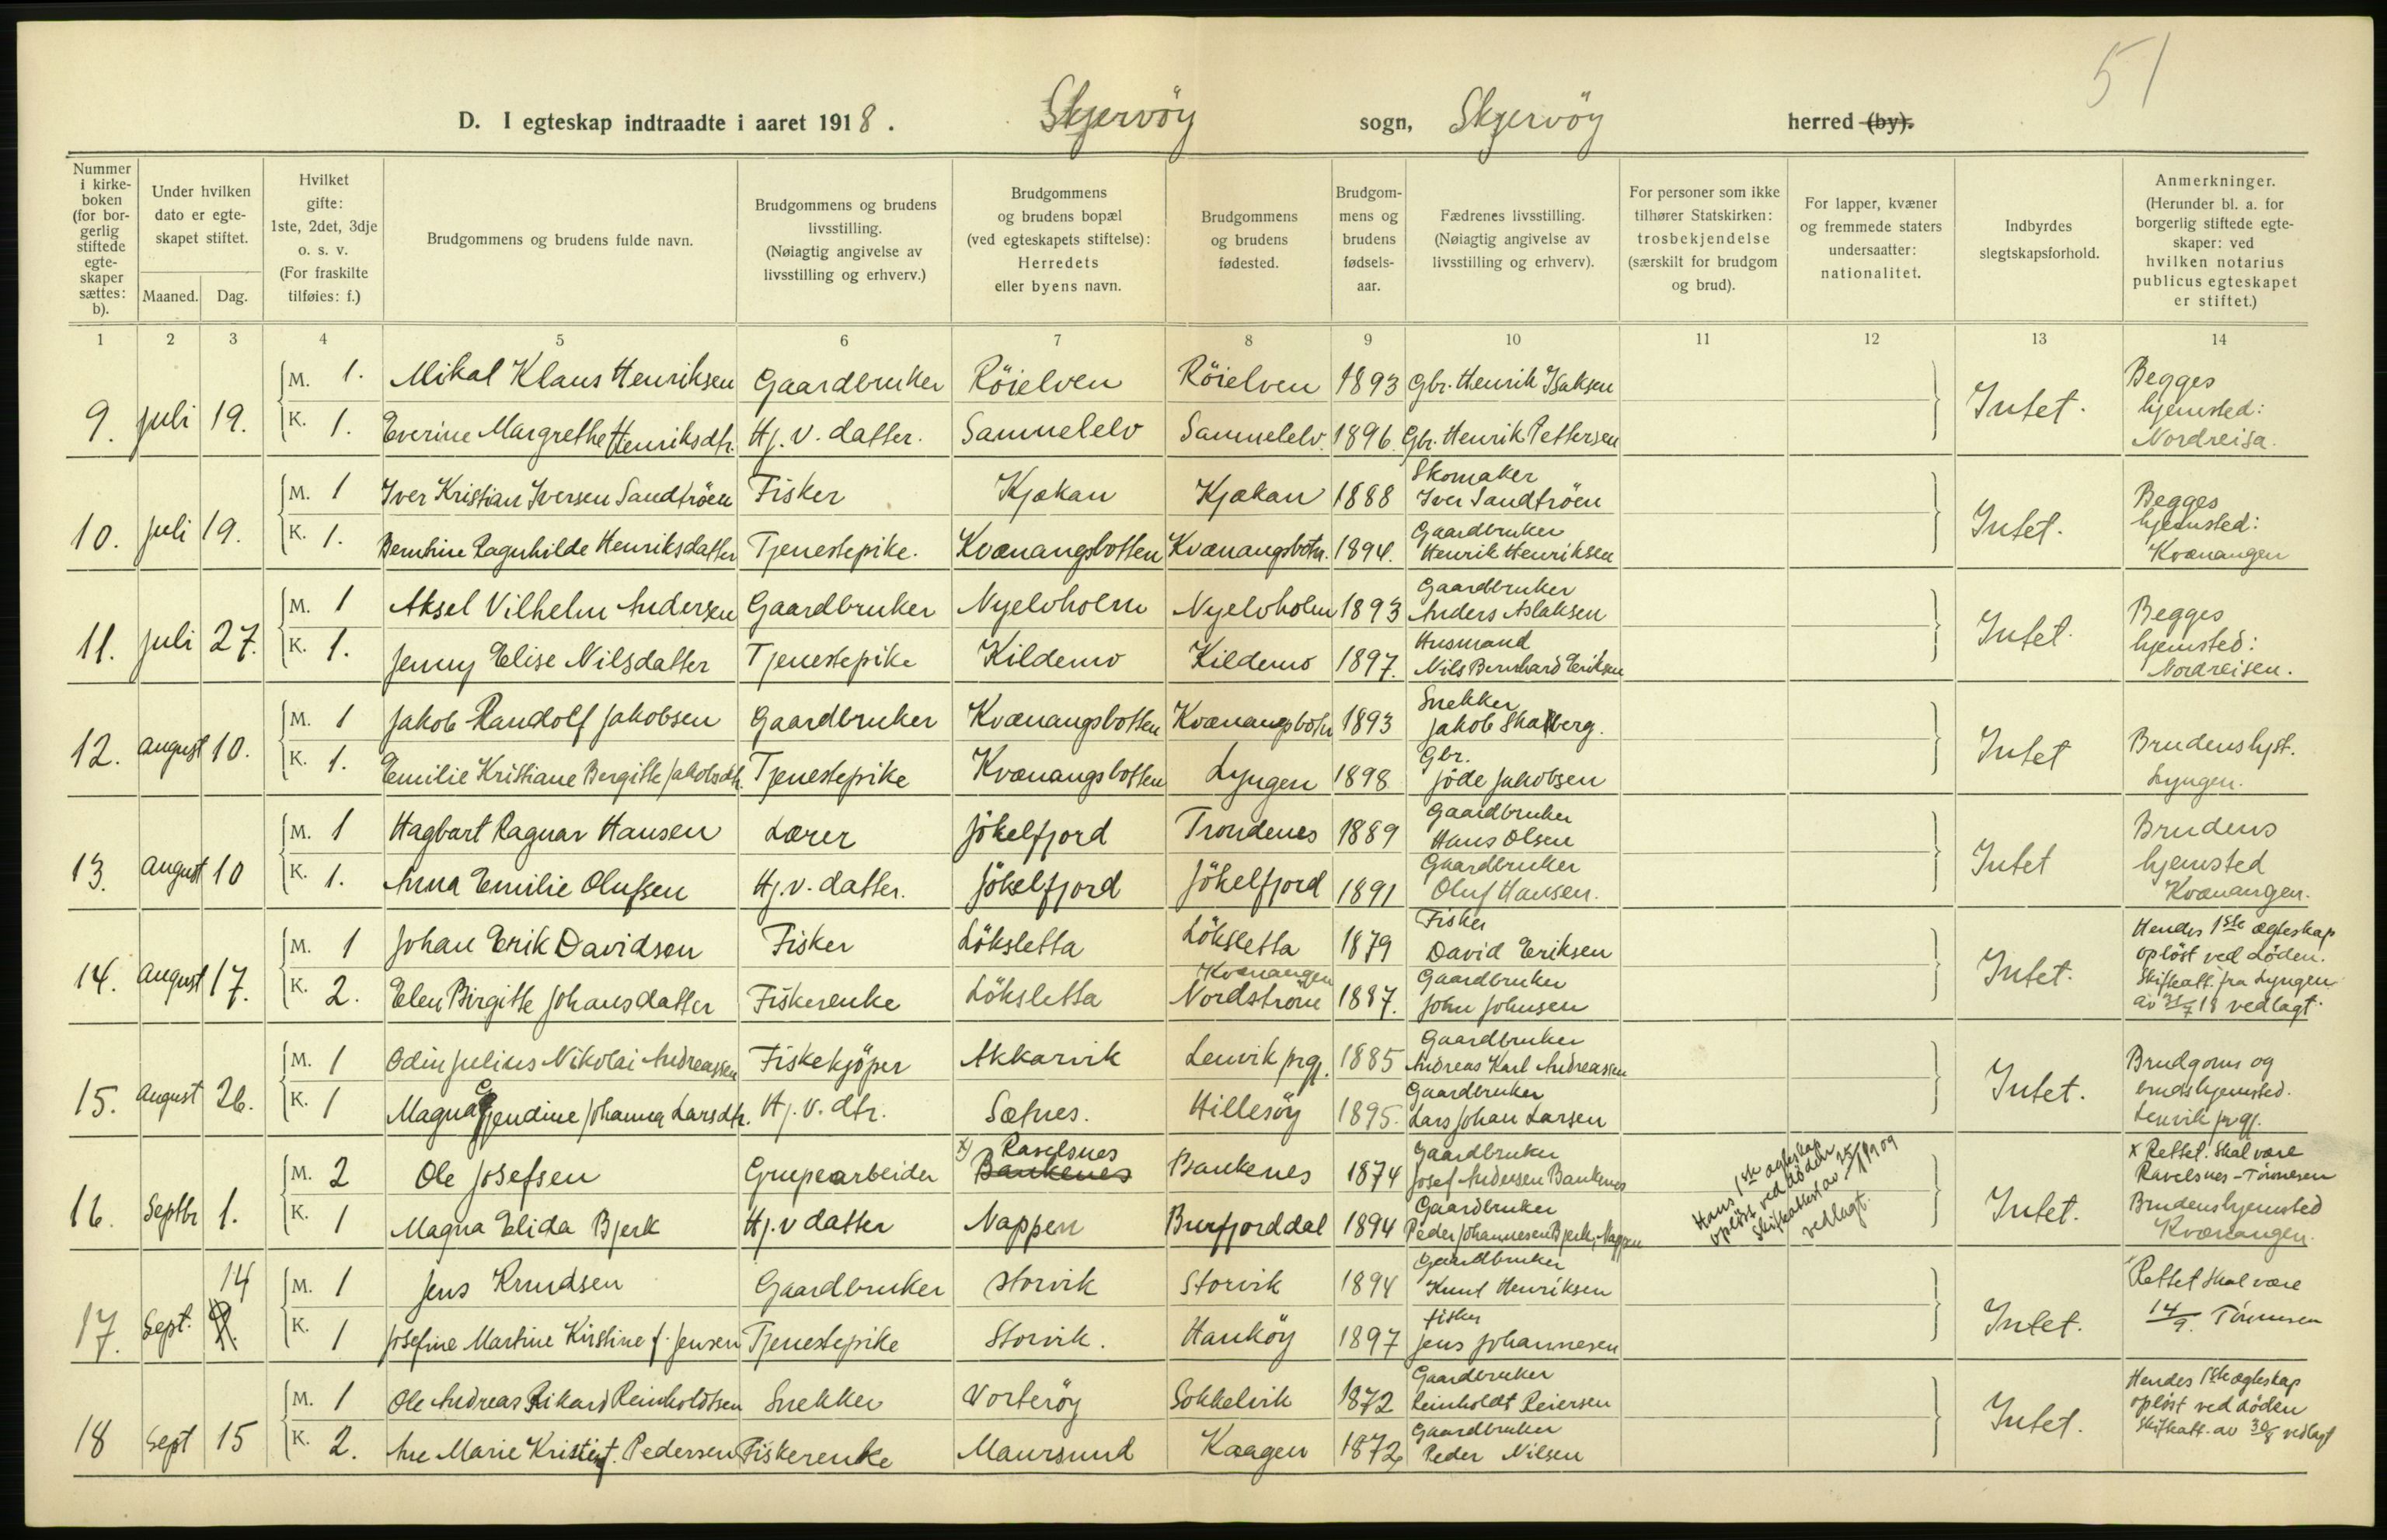 51
D. I egteskap indtraadte i aaret 1918. Skjervöy sogn, Skjervöy herred (by).
Nummer i kirkeboken (for borgerlig stiftede egteskaper sættes: b).
Under hvilken dato er egteskapet stiftet.
Maaned. Dag.
Hvilket gifte: 1ste, 2det, 3dje o. s. v. (For fraskilte tilføies: f.)
Brudgommens og brudens fulde navn.
Brudgommens og brudens livsstilling. (Nøiagtig angivelse av livsstilling og erhverv.)
Brudgommens og brudens bopæl (ved egteskapets stiftelse): Herredets eller byens navn.
Brudgommens og brudens fødested.
Brudgommens og brudens fødselsaar.
Fædrenes livsstilling. (Nøiagtig angivelse av livsstilling og erhverv).
For personer som ikke tilhører Statskirken: trosbekjendelse (særskilt for brudgom og brud).
For lapper, kvæner og fremmede staters undersaatter: nationalitet.
Indbyrdes slegtskapsforhold.
Anmerkninger. (Herunder bl. a. for borgerlig stiftede egteskaper: ved hvilken notarius publicus egteskapet er stiftet.)
1 2 3 4 5 6 7 8 9 10 11 12 13 14
9. juli 19.
M. 1. Mikal Klaus Henriksen Gaardbruker Röielven Röielven 1893 Gbr. Henrik Isaksen
K. 1. Everine Margrethe Henriksdtr. Hj. v. datter. Samuelelv Samuelelv. 1896. Gbr. Henrik Pettersen
Intet. Begges hjemsted: Nordreisa.
10. juli 19.
M. 1 Iver Kristian Iversen Sandtröen Fisker Kjækan Kjækan 1888 Skomaker Iver Sandtröen
K. 1. Bernhine Ragnhilde Henriksdatter Tjenestepike. Kvænangsbotten Kvænangsbotn. 1894. Gaardbruker Henrik Henriksen
Intet. Begges hjemsted: Kvænangen
11. juli 27.
M. 1 Aksel Vilhelm Andersen Gaardbruker Nyelvholm Nyelvholm 1893 Gaardbruker Anders Aslaksen
K. 1. Jenny Elise Nilsdatter Tjenestepike Kildemo Kildemo 1897. Husmand Nils Bernhard Eriksen
Intet. Begges hjemsted: Nordreisen.
12. august 10.
M. 1 Jakob Randolf Jakobsen Gaardbruker Kvænangsbotten Kvænangsbotn 1893 Snekker Jakob Skalberg.
K. 1. Emilie Kristiane Bergitte Jakobsdtr. Tjenestepike Kvænangsbotten Lyngen 1898 Gbr. Jöde Jakobsen
Intet Brudens hjst. Lyngen.
13. august 10
M. 1 Hagbart Ragnar Hansen Lærer Jökelfjord Trondenes 1889 Gaardbruker Hans Olsen
K. 1. Anna Emilie Olufsen Hj. v. datter. Jökelfjord Jökelfjord 1891 Gaardbruker Oluf Hansen.
Intet Brudens hjemsted Kvænangen.
14. august 17.
M. 1 Johan Erik Davidsen Fisker Löksletta Löksletta 1879 Fisker David Eriksen
K. 2. Elen Birgitte Johansdatter Fiskerenke Löksletta Kvænangen Nordström 1887. Gaardbruker John Johnsen
Intet. Hendes 1ste ægteskap oplöst ved döden. Skifteatt. fra Lyngen vedlagt.
15. august 26.
M. 1 Odin Julius Nikolai Andreassen Fiskekjöper Akkarvik Lenvik prgj. 1885 Gaardbruker Andreas Karl Andreassen
K. 1 Magna Gjendine Johanna Larsdtr. Hj. v. dtr. Sætnes. Hillesöy 1895. Gaardbruker Lars Johan Larsen
Intet. Brudgoms og bruds hjemsted. Lenvik prgj.
16. Septbr 1.
M. 2 Ole Josefsen Grupearbeider x) Ravelsnes Bankenes Bankenes 1874 Gaardbruker Josef Andersen Bankenes
K. 1 Magna Elida Bjerk Hj. v datter Nappen Burfjorddal 1894 Gaardbruker Peder Johannesen Bjerk, Nappen
Hans 1ste ægteskap oplöst ved döden Skifteattest av 1909 vedlagt.
Intet. x Rettet. Skal være Ravelsnes - Tönnesen Brudens hjemsted Kvænangen.
17. Sept. 14
M. 1 Jens Knudsen Gaardbruker Storvik Storvik 1894 Gaardbruker Knut Henriksen
K. 1 Josefine Martine Kirstine f. Jensen Tjenestepike Storvik. Hauköy 1897 Fisker Jens Johannesen
Intet. Rettet skal være 14/9. Tönnesen
18 Sept 15
M. 1 Ole Andreas Rikard Reinholdtsen Snekker Vorteröy Sokkelvik 1872 Gaardbruker Reinholdt Reiersen
K. 2. Ane Marie Kristine f. Pedersen Fiskerenke Maursund Kaagen 1872 Gaardbruker Peder Nilsen
Intet. Hendes 1ste ægteskap oplöst ved döden Skifteatt. av 30/8 vedlagt